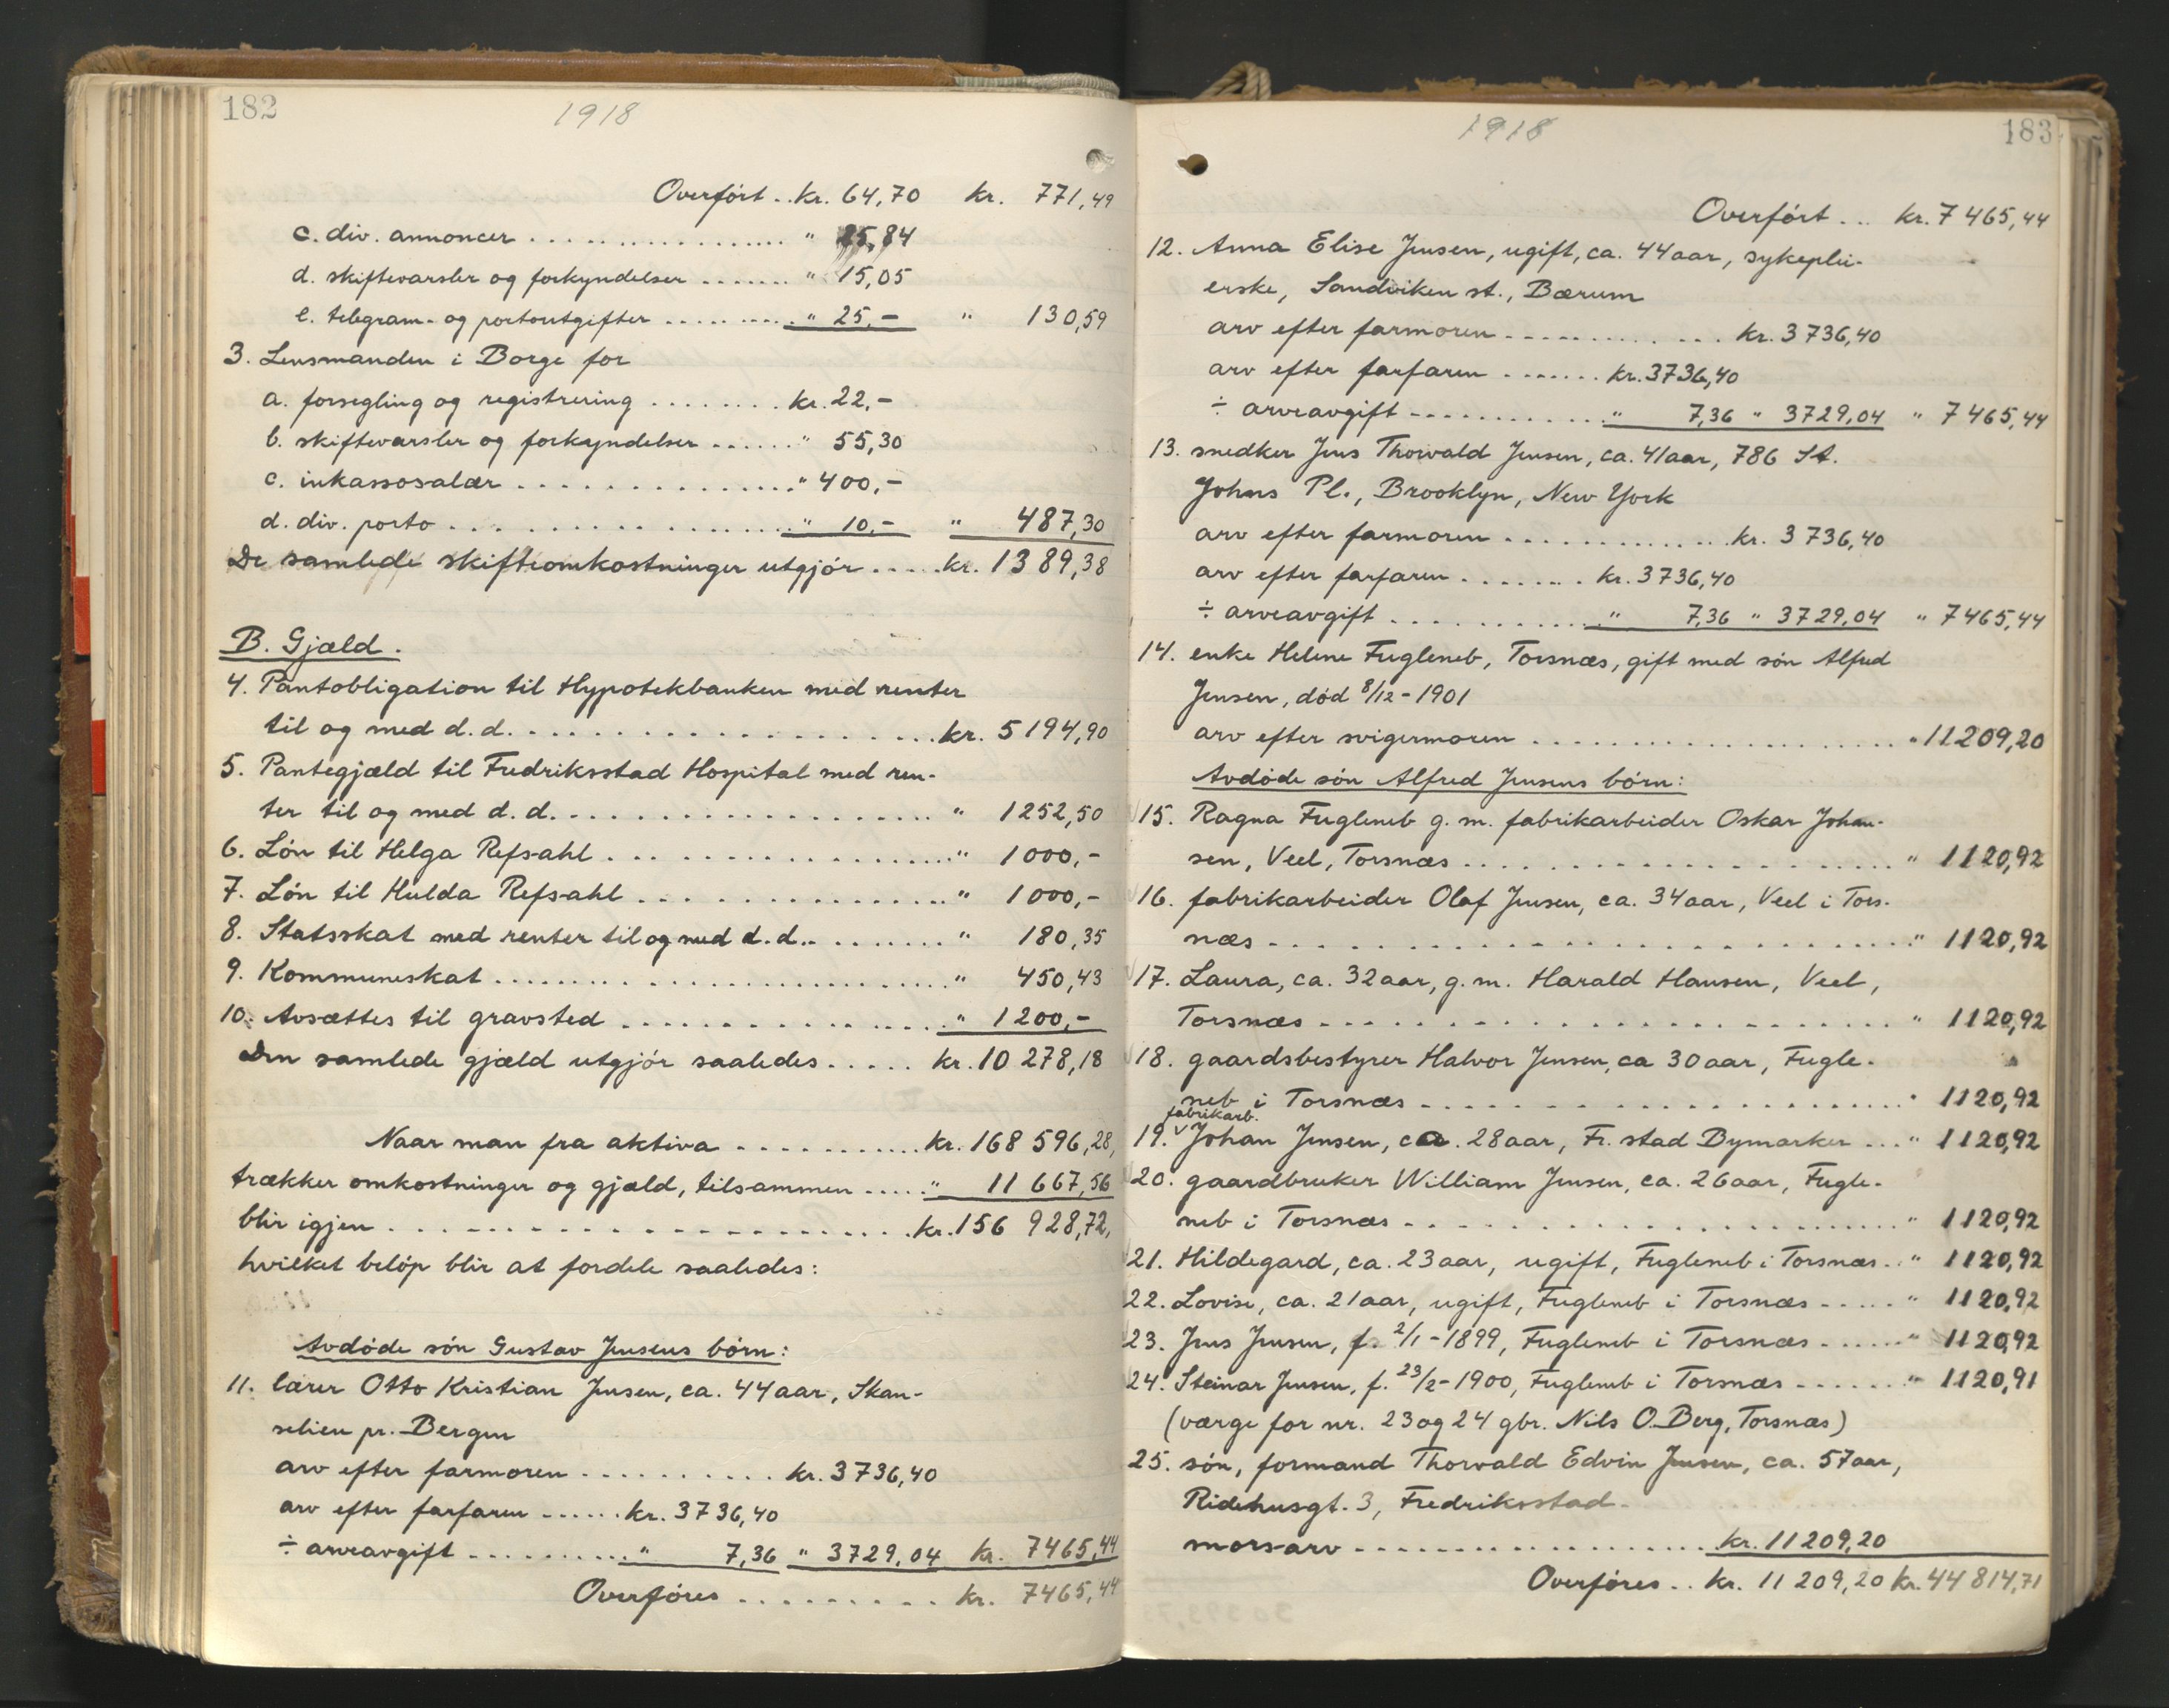 182
1918
Overført .. kr. 64,70 kr. 771,49
c. div. annoncer .................. " 25,84
d. skiftevarsler og forkyndelser ....... " 15,05
e. telegram- og portoutgifter .......... " 25,- " 130,59
3. Lensmanden i Borge for
a. forsegling og registrering ........ kr. 22,-
b. skiftevarsler og forkyndelser ...... " 55,30
c. inkassosalær ............... " 400,-
d. div. porto .................. " 10,- " 487,30
De samlede skifteomkostninger utgjør ..... kr. 1389,38
B. Gjæld.
4. Pantobligation til Hypotekbanken med renter
til og med d.d. .................... kr. 5194,90
5. Pantegjæld til Fredriksstad Hospital med ren-
ter til og med d.d. .................. " 1252,50
6. Løn til Helga Refsahl ................ " 1000,-
7. Løn til Hulda Refsahl ............... " 1000,-
8. Statsskat med renter til og med d.d. ........ " 180,35
9. Kommuneskat ....................... " 450,43
10. Avsættes til gravsted ................ " 1200,-
Den samlede gjæld utgjør saaledes ..... kr. 10 278,18
Naar man fra aktiva ........... kr. 168 596,28,
trækker omkostninger og gjæld, tilsammen ..... " 11 667,56
blir igjen ...................... kr. 156 928,72,
hvilket beløp blir at fordele saaledes:
Avdøde søn Gustav Jensens børn:
11. lærer Otto Kristian Jensen, ca. 44 aar, Skan-
selien pr. Bergen
arv efter farmoren .......... kr. 3736,40
arv efter farfaren ...... kr. 3736,40
÷ arveavgift .......... " 7,36 " 3729,04 kr. 7465,44
Overføres ......... kr. 7465,44
1918
183
Overført ... kr. 7465,44
12. Anna Elise Jensen, ugift, ca. 44 aar, sykeplei-
erske, Sandviken st., Bærum
arv efter farmoren ............ kr. 3736,40
arv efter farfaren ....... kr. 3736,40
÷ arveavgift ............ " 7,36 " 3729,04 " 7465,44
13. snedker Jens Thorvald Jensen, ca. 41 aar, 786 St.
Johns Pl., Brooklyn, New York
arv efter farmoren ............. kr. 3736,40
arv efter farfaren ........ kr. 3736,40
÷ arveavgift ............ " 7,36 " 3729,04 " 7465,44
14. enke Helene Fugleneb, Torsnæs, gift med søn Alfred
Jensen, død 8/12-1901
arv efter svigermoren .................... " 11209,20
Avdøde søn Alfred Jensens børn:
15. Ragna Fugleneb g.m. fabrikarbeider Oskar Johan-
sen, Veel, Torsnæs ..................... " 1120,92
16. fabrikarbeider Olaf Jensen, ca. 34 aar, Veel i Tors-
næs ............................. " 1120,92
17. Laura, ca. 32 aar, g.m. Harald Hansen, Veel,
Torsnæs ......................... " 1120,92
18. gaardsbestyrer Halvor Jensen, ca 30 aar, Fugle-
neb i Torsnæs ..................... " 1120,92
fabrikarb.
19. ∨ Johan Jensen, ca. 28 aar, Fr.stad Bymarker ... " 1120,92
20. gaardbruker William Jensen, ca. 26 aar, Fugle-
neb i Torsnæs ..................... " 1120,92
21. Hildegard, ca. 23 aar, ugift, Fugleneb i Torsnæs .. " 1120,92
22. Lovise, ca. 21 aar, ugift, Fugleneb i Torsnæs ..... " 1120,92
23. Jens Jensen, f. 2/1-1899, Fugleneb i Torsnæs ...... " 1120,92
24. Steinar Jensen, f. 23/2-1900, Fugleneb i Torsnæs ...... " 1120,91
(værge for nr. 23 og 24 gbr. Nils O. Berg, Torsnæs)
25. søn, formand Thorvald Edvin Jensen, ca. 57 aar,
Ridehusgt. 3, Fredriksstad.
morsarv ................... kr. 11209,20
Overføres .. kr. 11 209,20 kr. 44 814,71